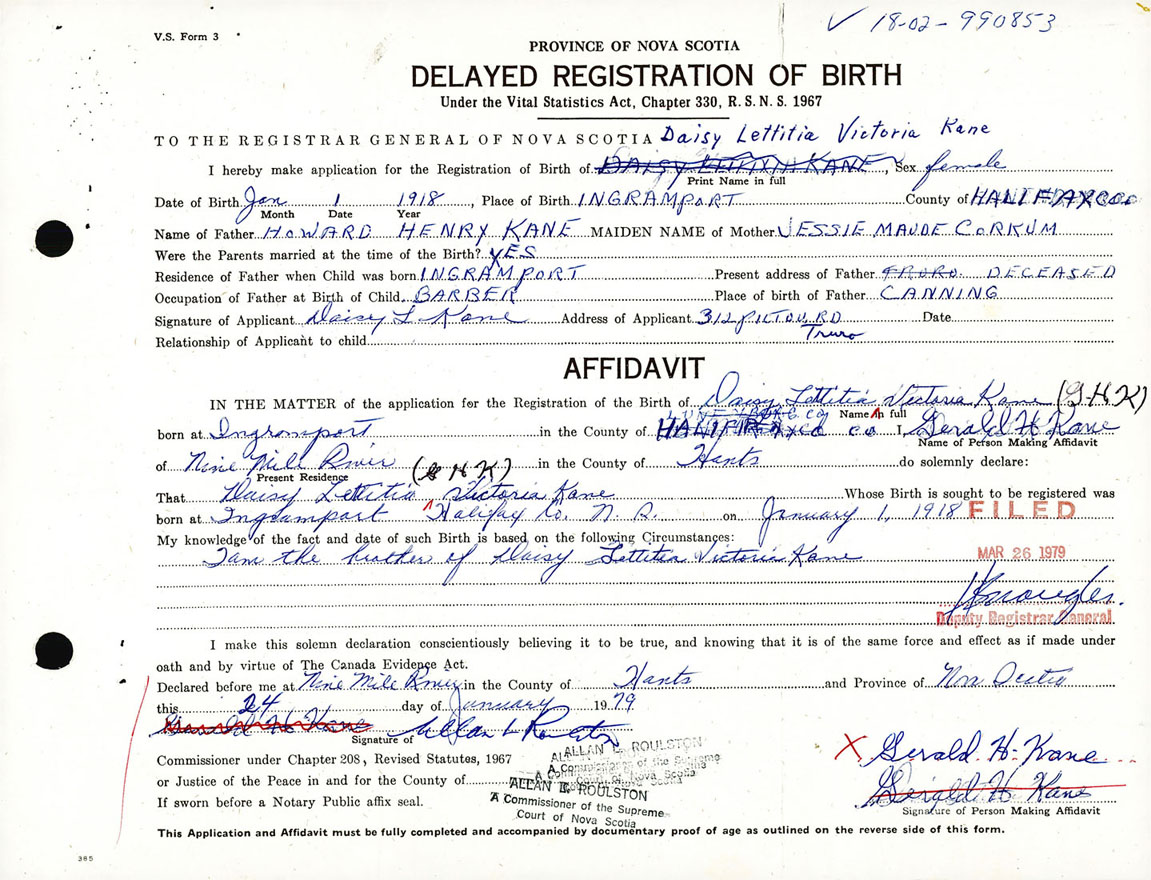 ✓ 18-02-990853
V.S. Form 3
PROVINCE OF NOVA SCOTIA
DELAYED REGISTRATION OF BIRTH
Under the Vital Statistics Act, Chapter 330, R.S.N.S. 1967
TO THE REGISTRAR GENERAL OF NOVA SCOTIA Daisy Lettitia Victoria Kane
I hereby make application for the Registration of Birth of DAISY KANE, Sex female
Print Name in full
Date of Birth Jan 1 1918, Place of Birth INGRAMPORT County of HALIFAX CO
Month Date Year
Name of Father HOWARD HENRY KANE MAIDEN NAME of Mother JESSIE MAUDE CORKUM
Were the Parents married at the time of the Birth? YES
Residence of Father when Child was born INGRAMPORT Present address of Father TRURO. DECEASED
Occupation of Father at Birth of Child BARBER Place of birth of Father CANNING
Signature of Applicant Daisy L. Kane Address of Applicant 312 PICTOU RD Date
Truro
Relationship of Applicant to child
AFFIDAVIT
IN THE MATTER of the application for the Registration of the Birth of Daisy Lettitia Victoria Kane (G.H.K)
LUNENBURG CO Name in full
born at Ingramport in the County of HALIFAX CO I, Gerald H Kane
Name of Person Making Affidavit
of Nine Mile River (G H K) in the County of Hants do solemnly declare:
Present Residence
That Daisy Lettitia Victoria Kane Whose Birth is sought to be registered was
born at Ingramport Halifax Co. N. S. on January 1, 1918 FILED
My knowledge of the fact and date of such Birth is based on the following Circumstances:
I am the brother of Daisy Lettitia Victoria Kane MAR 26 1979
Deputy Registrar General
I make this solemn declaration conscientiously believing it to be true, and knowing that it is of the same force and effect as if made under
oath and by virtue of The Canada Evidence Act.
Declared before me at Nine Mile River in the County of Hants and Province of Nova Scotia
this 24 day of January 1979
Gerald H Kane Allan L Roulston
Signature of
Commissioner under Chapter 208, Revised Statutes, 1967
or Justice of the Peace in and for the County of
If sworn before a Notary Public affix seal.
ALLAN L. ROULSTON
A Commissioner of the Supreme
Court of Nova Scotia
ALLAN L. ROULSTON
A Commissioner of the Supreme
Court of Nova Scotia
X Gerald. H. Kane
Gerald H Kane
Signature of Person Making Affidavit
This Application and Affidavit must be fully completed and accompanied by documentary proof of age as outlined on the reverse side of this form.
385